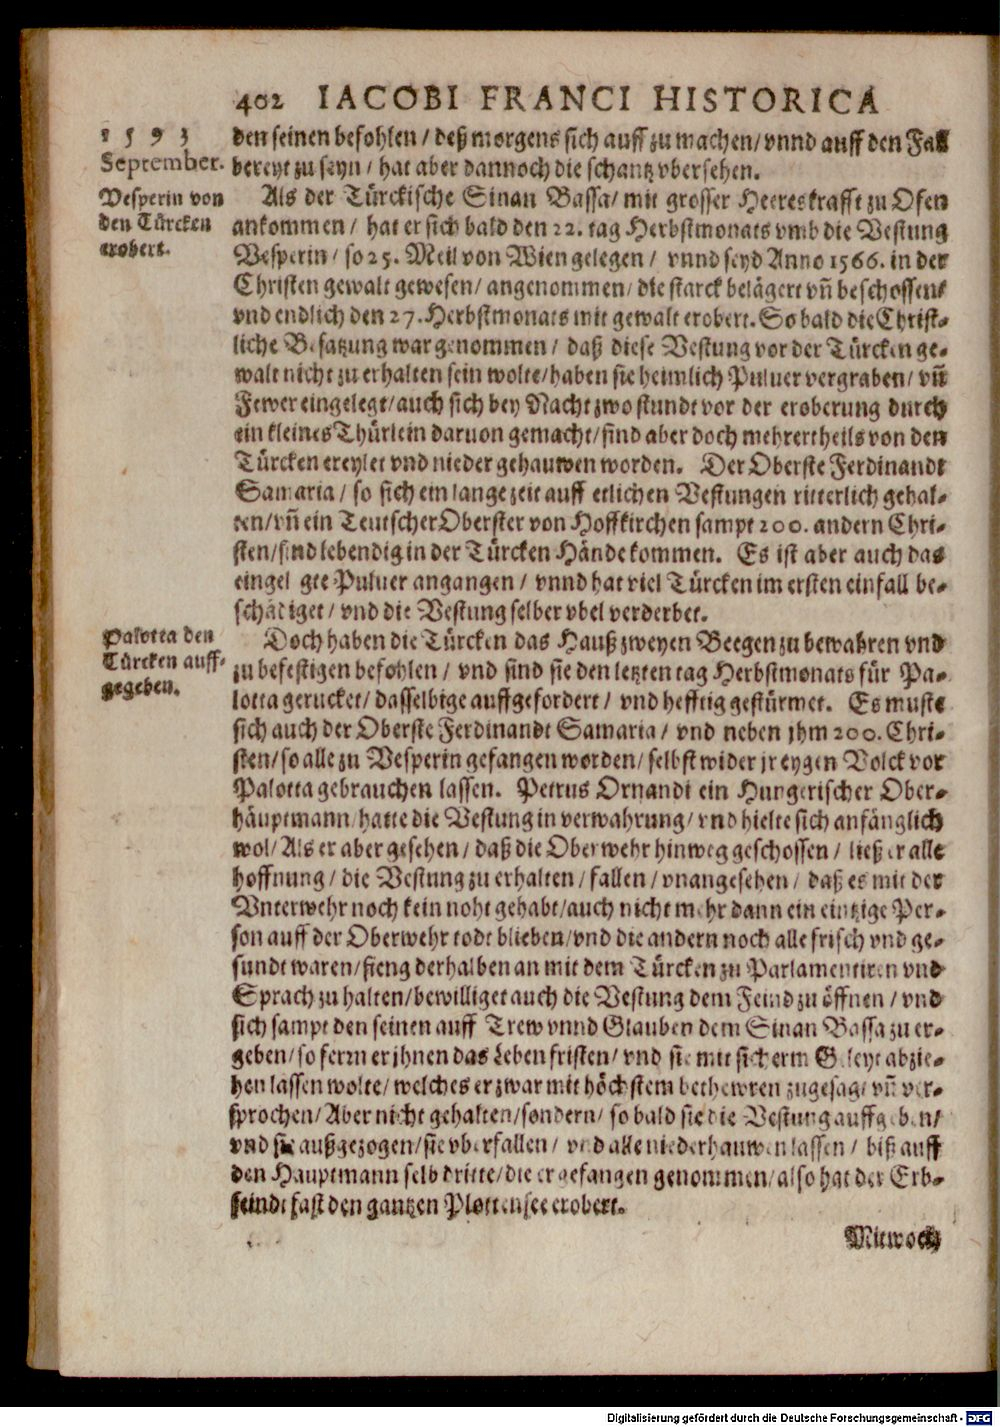 402 IACOBI FRANCI HISTORICA
1593
September.
den seinen befohlen / deß morgens sich auff zu machen / vnnd auff den Fall
bereyt zu seyn / hat aber dannoch die schantz vbersehen.
Vesperin von
den Türcken
erobert.
Als der Türckische Sinan Bassa / mit grosser Heereskrafft zu Ofen
ankommen / hat er sich bald den 22. tag Herbstmonats vmb die Vestung
Vesperin / so 25. Meil von Wien gelegen / vnnd seyd Anno 1566. in der
Christen gewalt gewesen / angenommen / die starck belägert vn̄ beschossen /
vnd endlich den 27. Herbstmonats mit gewalt erobert. So bald die Christ-
liche Besatzung war genommen / daß diese Vestung vor der Türcken ge-
walt nicht zu erhalten sein wolte / haben sie heimlich Puluer vergraben / vn̄
Fewer eingelegt / auch sich bey Nacht zwo stundt vor der eroberung durch
ein kleines Thürlein daruon gemacht / sind aber doch mehrertheils von den
Türcken ereylet vnd nieder gehauwen worden. Der Oberste Ferdinandt
Samaria / so sich ein lange zeit auff etlichen Vestungen ritterlich gehal-
ten / vn̄ ein Teutscher Oberster von Hoffkirchen sampt 200. andern Chri-
sten / sind lebendig in der Türcken Hände kommen. Es ist aber auch das
eingelegte Puluer angangen / vnnd hat viel Türcken im ersten einfall be-
schädiget / vnd die Vestung selber vbel verderbet.
Palotta den
Türcken auff-
gegeben.
Doch haben die Türcken das Hauß zweyen Beegen zu bewahren vnd
zu befestigen befohlen / vnd sind sie den letzten tag Herbstmonats für Pa-
lotta gerucket / dasselbige auffgefordert / vnd hefftig gestürmet. Es muste
sich auch der Oberste Ferdinandt Samaria / vnd neben jhm 200. Chri-
sten / so alle zu Vesperin gefangen worden / selbst wider jr eygen Volck vor
Palotta gebrauchen lassen. Petrus Ornandi ein Hungerischer Ober-
häuptmann / hatte die Vestung in verwahrung / vnd hielte sich anfänglich
wol / Als er aber gesehen / daß die Oberwehr hinweg geschossen / ließ er alle
hoffnung / die Vestung zu erhalten / fallen / vnangesehen / daß es mit der
Vnterwehr noch kein noht gehabt / auch nicht mehr dann ein eintzige Per-
son auff der Oberwehr todt blieben / vnd die andern noch alle frisch vnd ge-
sundt waren / fieng derhalben an mit dem Türcken zu Parlamentiren vnd
Sprach zu halten / bewilliget auch die Vestung dem Feind zu öffnen / vnd
sich sampt den seinen auff Trew vnnd Glauben dem Sinan Bassa zu er-
geben / so ferrn er jhnen das Leben fristen / vnd sie mit sicherm Geleyt abzie-
hen lassen wolte / welches er zwar mit höchstem bethewren zugesagt vn̄ ver-
sprochen / Aber nicht gehalten / sondern / so bald sie die Vestung auffgeben /
vnd sie außgezogen / sie vberfallen / vnd alle niederhauwen lassen / biß auff
den Hauptmann selb dritte / die er gefangen genommen / also hat der Erb-
feindt fast den gantzen Plottensee erobert.
Mitwoch
Digitalisierung gefördert durch die Deutsche Forschungsgemeinschaft - DFG